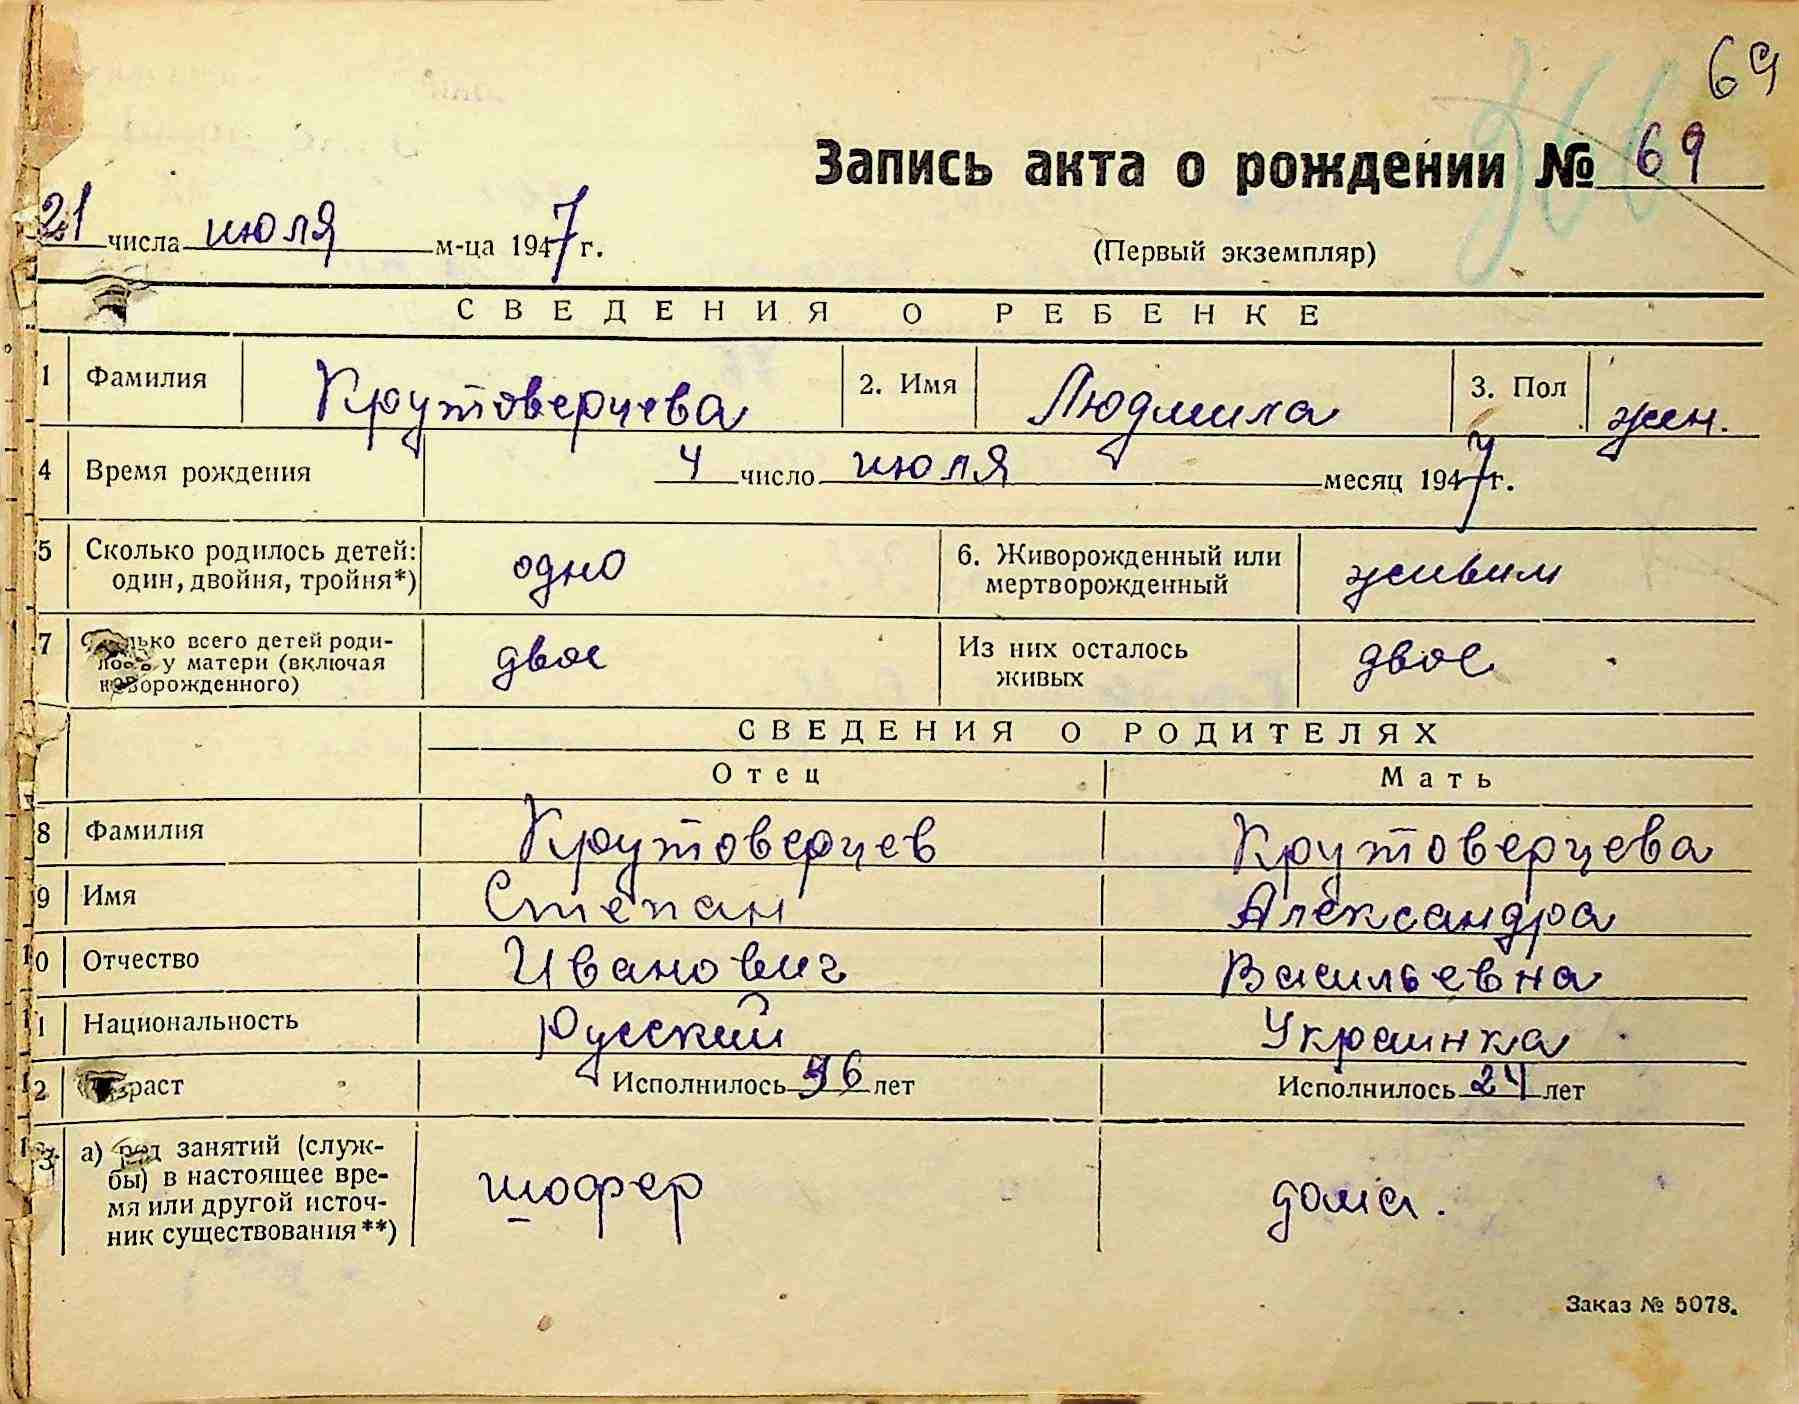 69
Запись акта о рождении № 69
21 числа июля м-ца 1947 г.
(Первый экземпляр)
СВЕДЕНИЯ О РЕБЕНКЕ
1 Фамилия Крутоверцева 2. Имя Людмила 3. Пол жен.
4 Время рождения 4 число июля месяц 1947 г.
5 Сколько родилось детей: один, двойня, тройня*) одно 6. Живорожденный или мертворожденный живым
7 Сколько всего детей роди-
лось у матери (включая
новорожденного) двое Из них осталось живых двое
СВЕДЕНИЯ О РОДИТЕЛЯХ
Отец Мать
8 Фамилия Крутоверцев Крутоверцева
9 Имя Степан Александра
10 Отчество Иванович Васильевна
11 Национальность Русский Украинка
12 Возраст Исполнилось лет Исполнилось 24 лет
13 а) род занятий (служ-
бы) в настоящее вре-
мя или другой источ-
ник существования**) шофер дома.
Заказ № 5078.